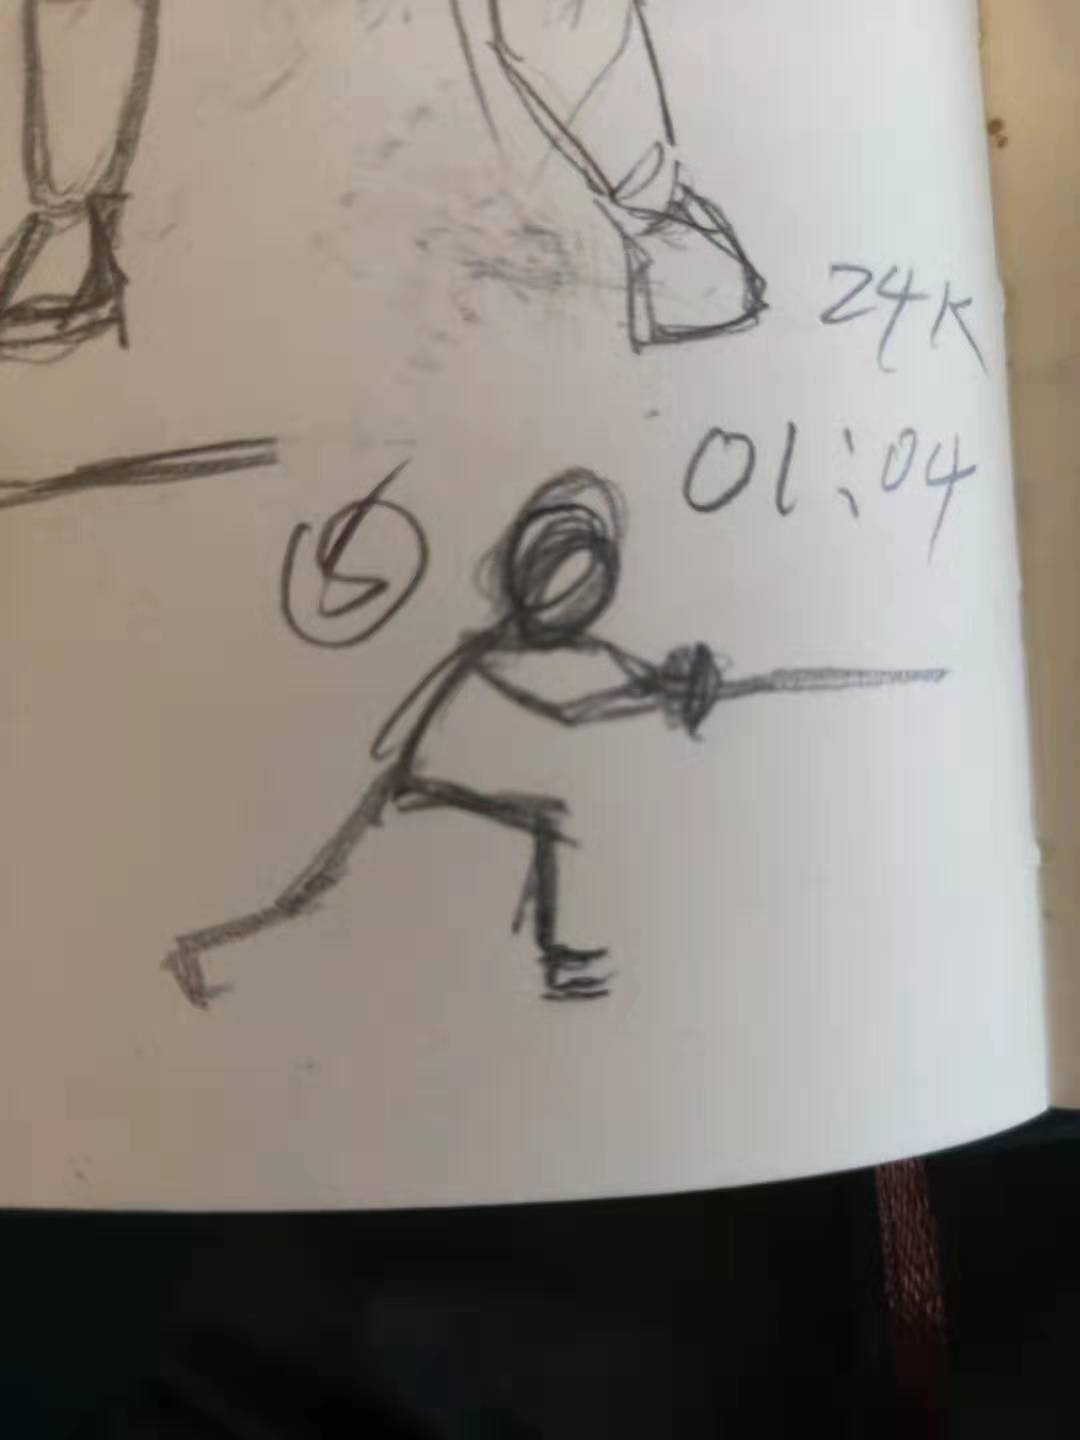 24K
01:04
5